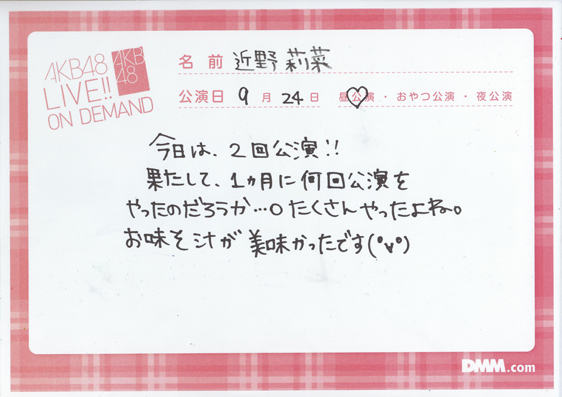 AKB48
LIVE!!
ON DEMAND
AKB
48
名 前 近野 莉菜
公演日 9 月 24 日 昼公演・おやつ公演・夜公演
今日は、2回公演!!
果たして、1ヵ月に何回公演を
やったのだろうか…。たくさんやったよね。
お味そ汁が美味かったです(°∨°)
DMM.com